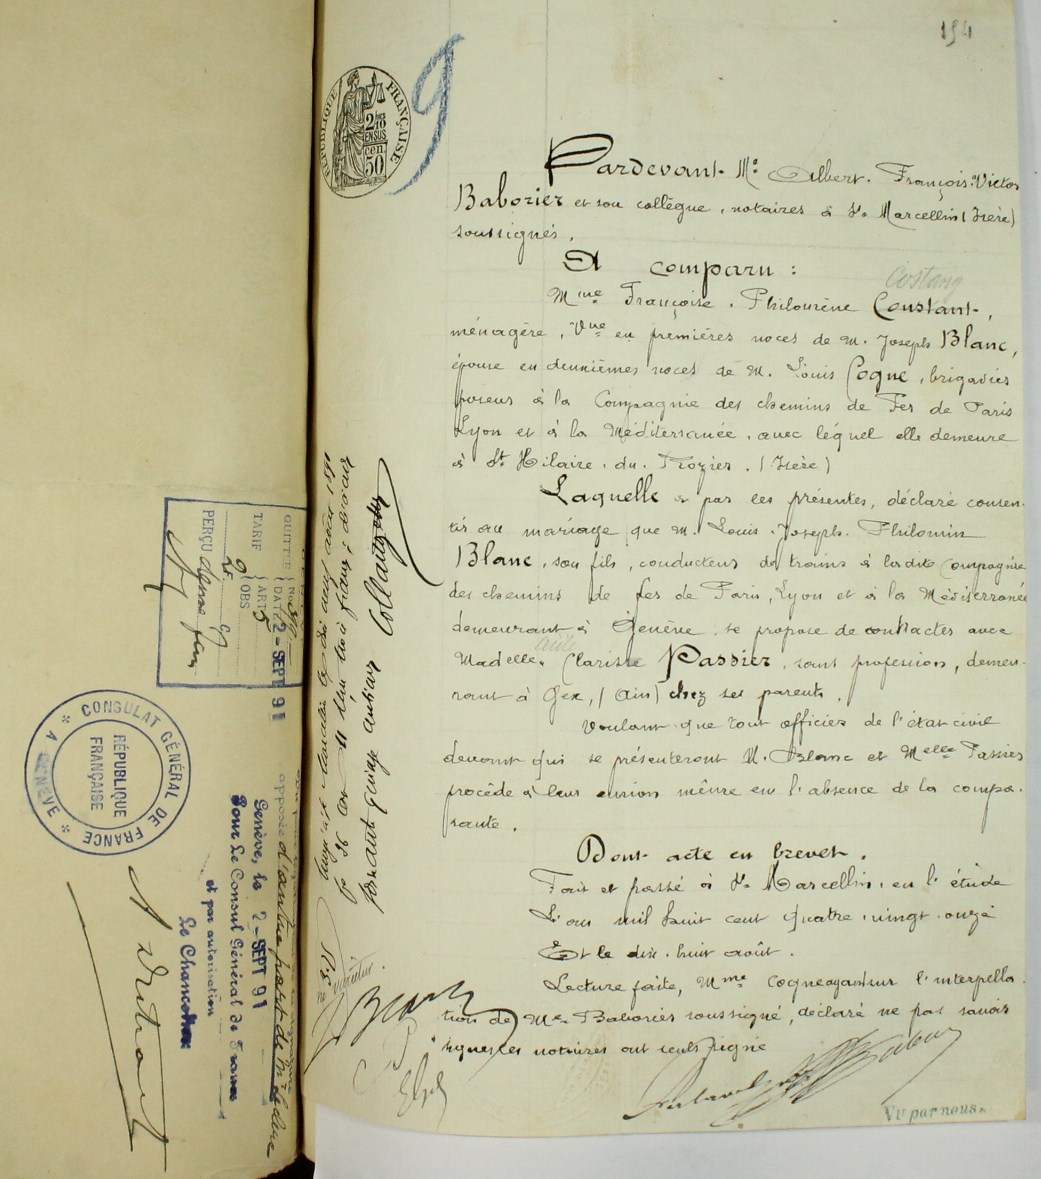 194
9
RÉPUBLIQUE FRANÇAISE
2/10 EN SUS
50 cen.
Pardevant Me Albert François Victor
Baborier et son collègue, notaires à St Marcellin (Isère)
soussignés,
A comparu :
Costang
Mme Françoise Philomène Constant,
ménagère, Vve en premières noces de M. Joseph Blanc,
épouse en deuxièmes noces de M. Louis Cogne, brigadier
poseur à la Compagnie des chemins de Fer de Paris
Lyon et à la Méditerranée, avec lequel elle demeure
à St Hilaire du Rozier. (Isère)
Laquelle a par ces présentes, déclaré consen-
tir au mariage que M. Louis Joseph Philomin
Blanc, son fils, conducteur de trains à la dite Compagnie
des chemins de fer de Paris, Lyon et à la Méditerranée
demeurant à Genève se propose de contracter avec
Madelle Clarisse Passier, sans profession, demeu-
rant à Gex, (Ain) chez ses parents.
Voulant que tout officier de l'état civil
devant qui se présenteront M. Blanc et Melle Passier
procède à leur union même en l'absence de la compa-
rante.
Dont acte en brevet.
Fait et passé à St Marcellin, en l'étude
L'an mil huit cent quatre vingt onze
Et le dix huit août.
Lecture faite, Mme Cogne ayant sur l'interpella-
tion de Me Baborier soussigné, déclaré ne pas savoir
signer, les notaires ont seuls signé
Vu par nous.
QUITTCE
No
DATE 2 - SEPT 91
TARIF
ART 5
OBS
PERÇU
CONSULAT GÉNÉRAL DE FRANCE
* A GENÈVE *
RÉPUBLIQUE
FRANÇAISE
apposée d'autre part de M.
Genève, le 2 - SEPT 91
Pour Le Consul Général de France
et par autorisation
Le Chancelier